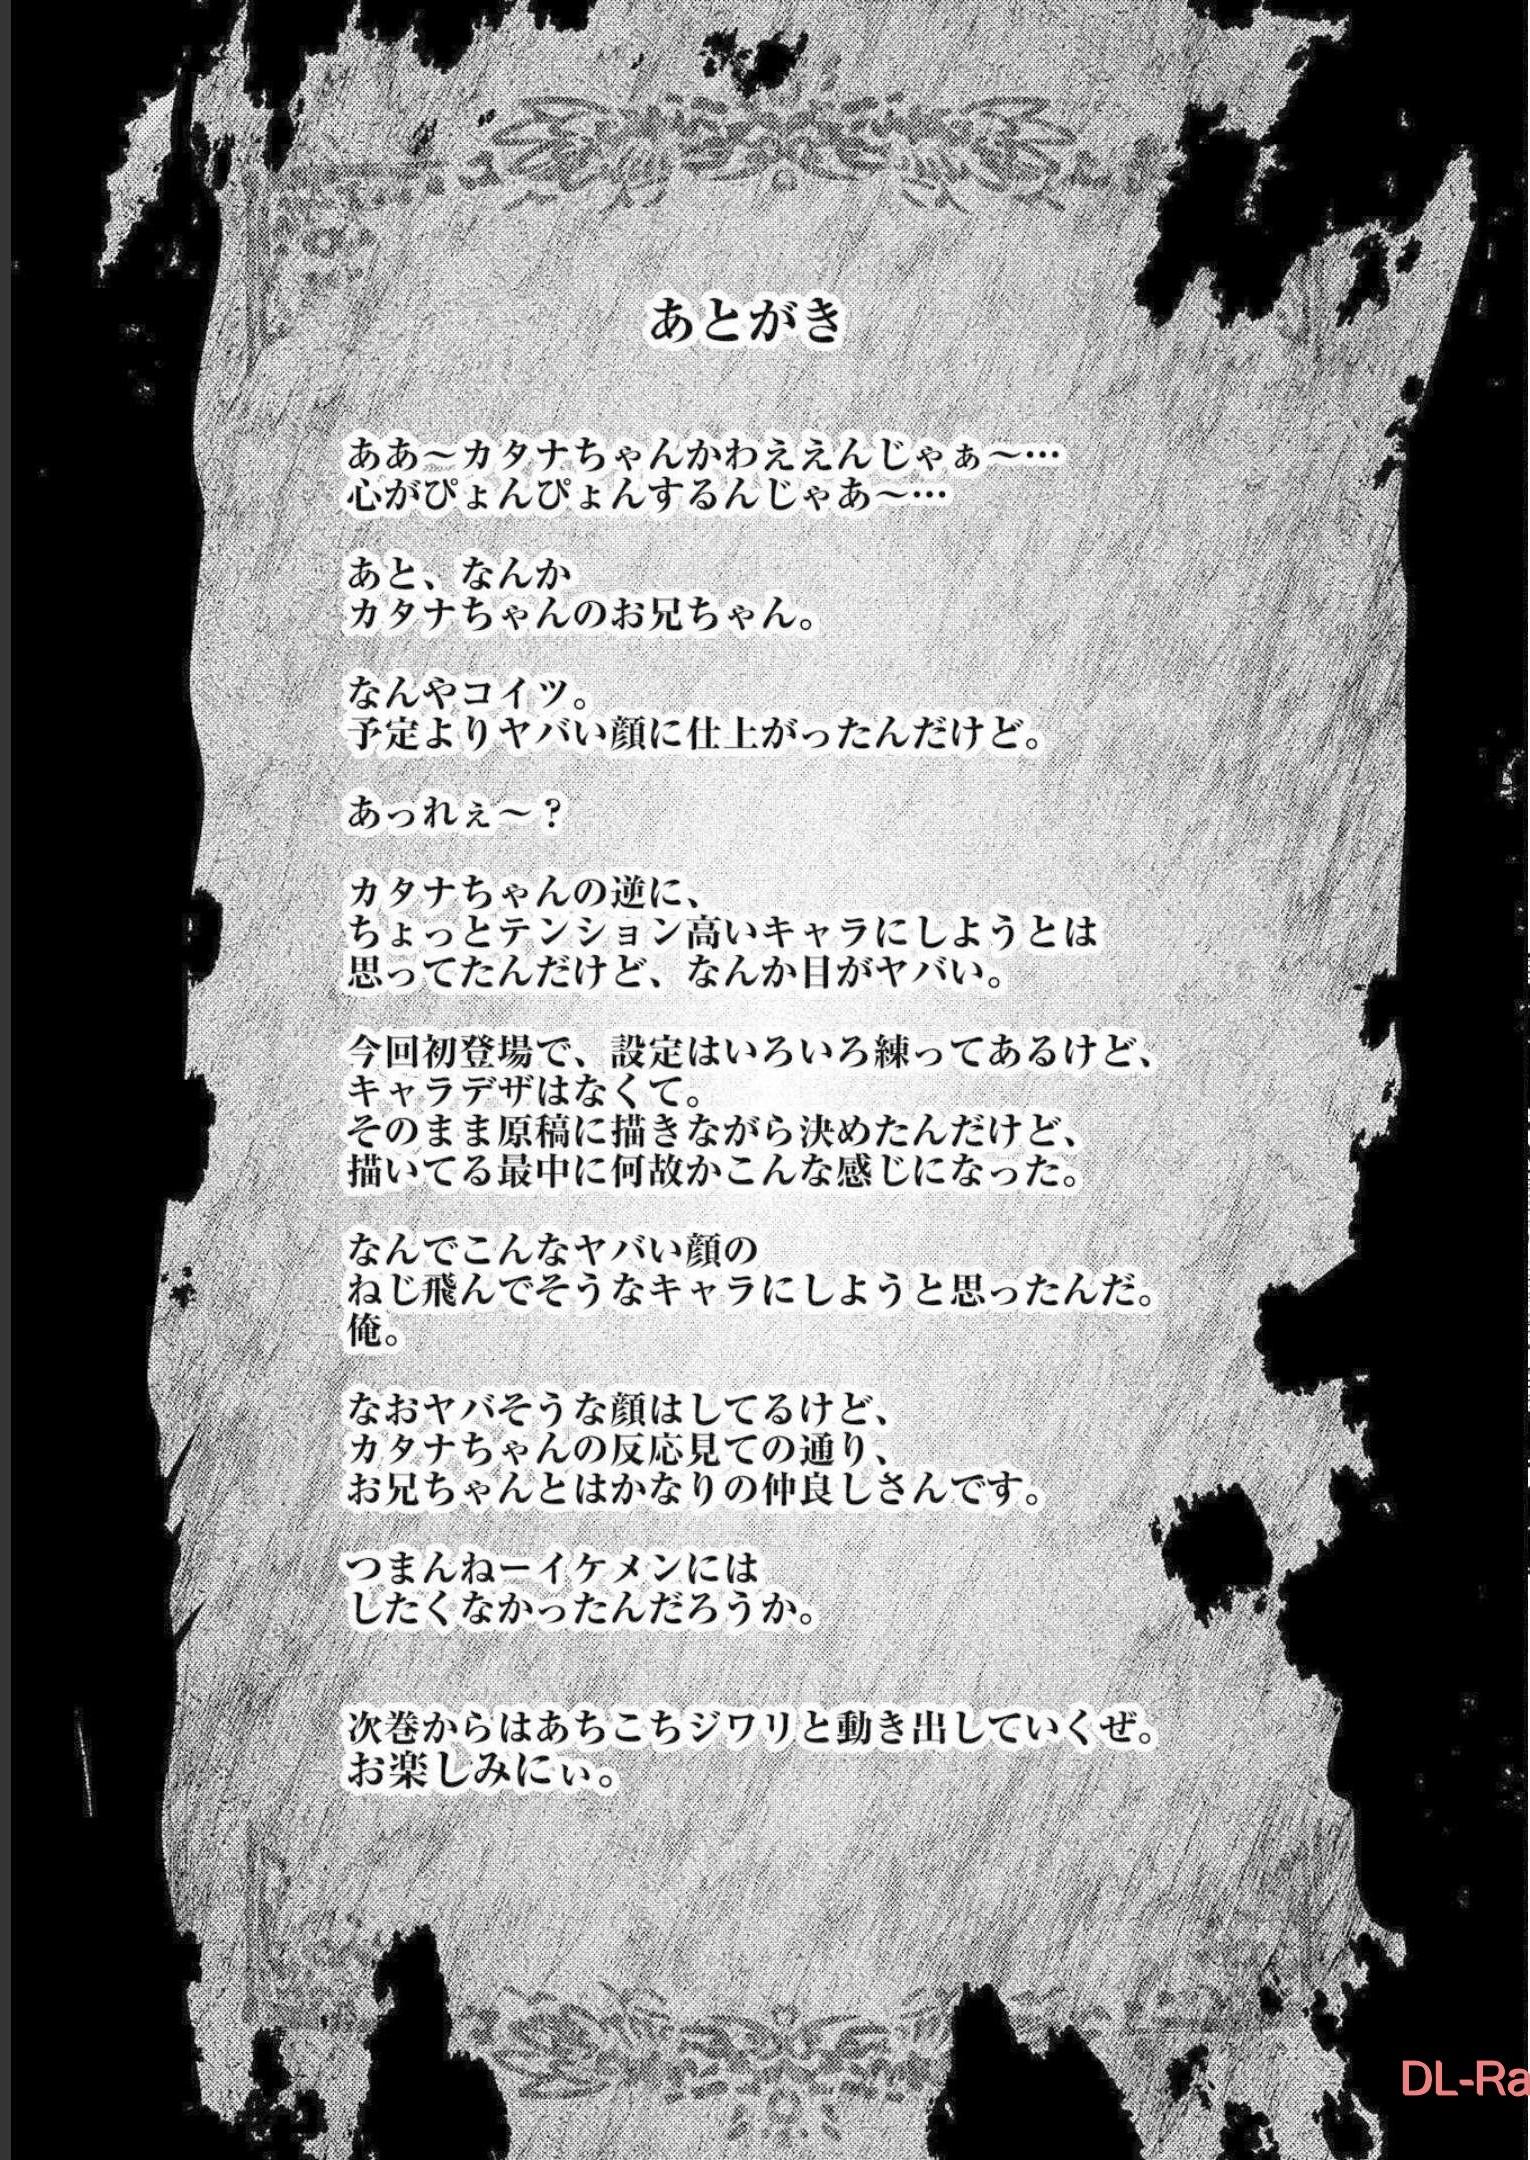 あとがき
ああ～カタナちゃんかわええんじゃぁ～…
心がぴょんぴょんするんじゃあ～…
あと、なんか
カタナちゃんのお兄ちゃん。
なんやコイツ。
予定よりヤバい顔に仕上がったんだけど。
あっれぇ～？
カタナちゃんの逆に、
ちょっとテンション高いキャラにしようとは
思ってたんだけど、なんか目がヤバい。
今回初登場で、設定はいろいろ練ってあるけど、
キャラデザはなくて。
そのまま原稿に描きながら決めたんだけど、
描いてる最中に何故かこんな感じになった。
なんでこんなヤバい顔の
ねじ飛んでそうなキャラにしようと思ったんだ。
俺。
なおヤバそうな顔はしてるけど、
カタナちゃんの反応見ての通り、
お兄ちゃんとはかなりの仲良しさんです。
つまんねーイケメンには
したくなかったんだろうか。
次巻からはあちこちジワリと動き出していくぜ。
お楽しみにぃ。
DL-Ra